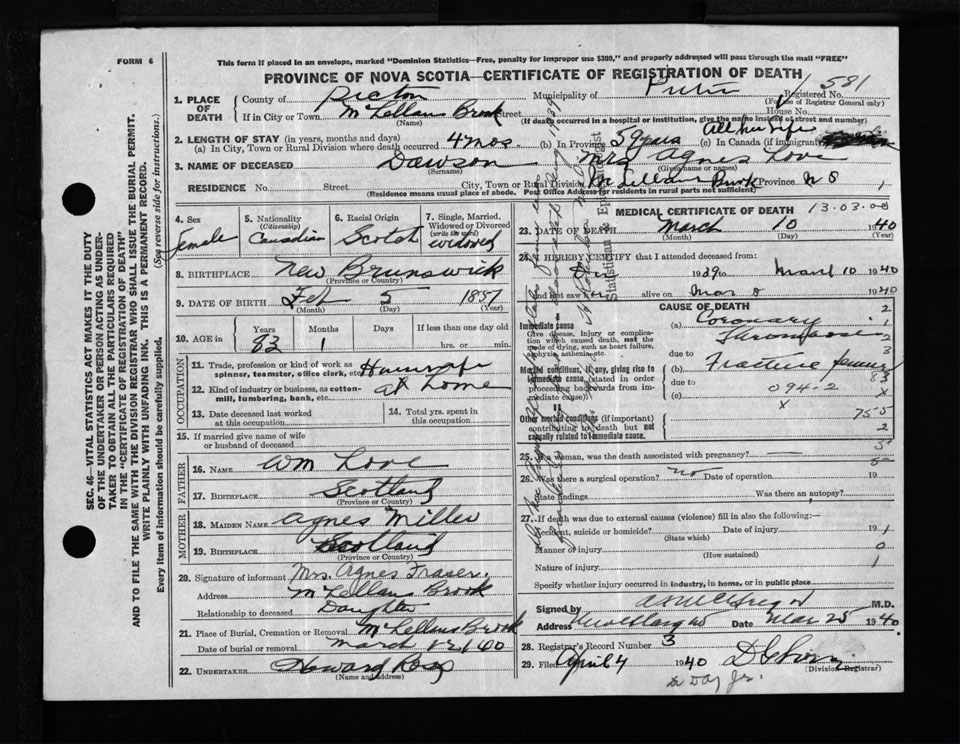 FORM 6
This form if placed in an envelope, marked "Dominion Statistics—Free, penalty for improper use $300," and properly addressed will pass through the mail "FREE"
PROVINCE OF NOVA SCOTIA—CERTIFICATE OF REGISTRATION OF DEATH
581
Registered No.
(For use of Registrar General only)
1. PLACE OF DEATH
County of Pictou Municipality of Pictou
If in City or Town McLellans Brook Street House No.
(Name) (If death occurred in a hospital or institution, give the name instead of street and number)
2. LENGTH OF STAY (in years, months and days)
(a) In City, Town or Rural Division where death occurred 4 mos. (b) In Province 59 yrs (c) In Canada (if immigrant) All her life
3. NAME OF DECEASED Dawson Mrs Agnes Love
(Surname) (Given name or names)
RESIDENCE No. Street City, Town or Rural Division McLellans Brook Province N S
(Residence means usual place of abode. Post Office Address for residents in rural parts not sufficient)
4. Sex Female
5. Nationality (Citizenship) Canadian
6. Racial Origin Scotch
7. Single, Married, Widowed or Divorced (write the word) widowed
8. BIRTHPLACE New Brunswick
(Province or Country)
9. DATE OF BIRTH Feb 5 1857
(Month) (Day) (Year)
10. AGE in Years 83 Months 1 Days If less than one day old hrs. or min.
OCCUPATION
11. Trade, profession or kind of work as spinner, teamster, office clerk, etc. Housewife
12. Kind of industry or business, as cotton-mill, lumbering, bank, etc. at home
13. Date deceased last worked at this occupation
14. Total yrs. spent in this occupation
15. If married give name of wife or husband of deceased
FATHER
16. NAME Wm Love
17. BIRTHPLACE Scotland
(Province or Country)
MOTHER
18. MAIDEN NAME Agnes Miller
19. BIRTHPLACE Scotland
(Province or Country)
20. Signature of informant Mrs. Agnes Fraser.
Address McLellans Brook
Relationship to deceased Daughter
21. Place of Burial, Cremation or Removal McLellans Brook
Date of burial or removal March 12/40
22. UNDERTAKER Howard Ross
(Name and Address)
MEDICAL CERTIFICATE OF DEATH 13.03.00
23. DATE OF DEATH March 10 1940
(Month) (Day) (Year)
24. I HEREBY CERTIFY that I attended deceased from:
Dec 1939 to March 10 1940
and last saw her alive on Mar 8 1940
CAUSE OF DEATH
Immediate cause
Give disease, injury or complication which caused death, not the mode of dying, such as heart failure, asphyxia, asthenia, etc.
(a) Coronary Thrombosis
due to
Morbid conditions, if any, giving rise to immediate cause (stated in order proceeding backwards from immediate cause)
Fracture femur
due to
(c)
094-2
Other morbid conditions (if important) contributing to death but not causally related to immediate cause.
25. If a woman, was the death associated with pregnancy? —
26. Was there a surgical operation? no Date of operation 19
State findings Was there an autopsy?
27. If death was due to external causes (violence) fill in also the following:—
Accident, suicide or homicide? Date of injury 19
(State which)
Manner of injury
(How sustained)
Nature of injury
Specify whether injury occurred in industry, in home, or in public place
Signed by M.D.
Address New Glasgow Date Mar 25 1940
28. Registrar's Record Number 3
29. Filed April 4 1940
(Division Registrar)
SEC. 46—VITAL STATISTICS ACT MAKES IT THE DUTY OF THE UNDERTAKER OR PERSON ACTING AS UNDERTAKER TO OBTAIN ALL THE PARTICULARS REQUIRED IN THE "CERTIFICATE OF REGISTRATION OF DEATH" AND TO FILE THE SAME WITH THE DIVISION REGISTRAR WHO SHALL ISSUE THE BURIAL PERMIT.
WRITE PLAINLY WITH UNFADING INK. THIS IS A PERMANENT RECORD.
Every item of information should be carefully supplied. (See reverse side for instructions.)